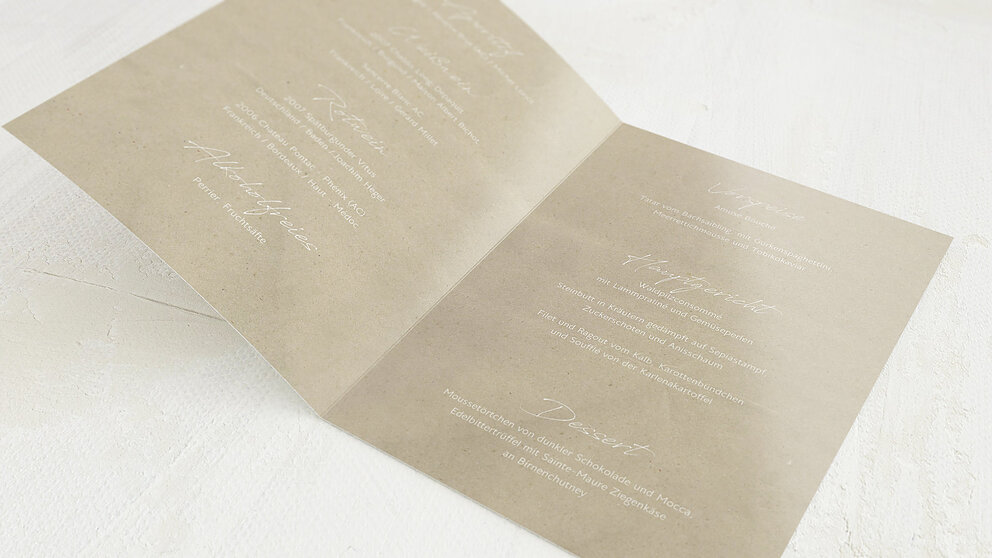 Weißwein
Sancerre Blanc AC
Frankreich / Loire / Gerard Millet
Rotwein
2007 Spätburgunder Vitus
Deutschland / Baden / Joachim Heger
2006 Chateau Pontac - Phenix (AC)
Frankreich / Bordeaux / Haut - Médoc
Alkoholfreies
Perrier Fruchtsäfte
Vorspeise
Amuse Bouche
Tatar vom Bachsaibling mit Gurkenspaghettini
Meerrettichmousse und Tobikokaviar
Hauptgericht
Waldpilzconsommé
mit Lammpraline und Gemüseperlen
Steinbutt in Kräutern gedämpft auf Sepiastampf
Zuckerschoten und Anisschaum
Filet und Ragout vom Kalb, Karottenbündchen
und Soufflé von der Karlenakartoffel
Dessert
Moussetörtchen von dunkler Schokolade und Mocca,
Edelbittertrüffel mit Sainte-Maure Ziegenkäse
an Birnenchutney